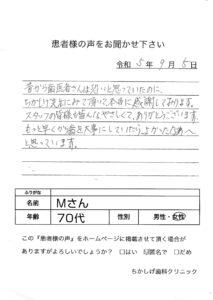 患者様の声をお聞かせ下さい
令和 5年 9月 5日
昔から歯医者さんは怖いと思っていたのに、
ちかしげ先生にみて頂いて、本当に感謝しております。
スタッフの皆様が皆んなやさしくて、ありがとうございます。
もっと早くから歯を大事にしていたらよかったなあへ
と思っています。
ふりがな
名前 Mさん
年齢 70代 性別 男性・女性
この『患者様の声』をホームページに掲載させて頂く場合が
ありますがよろしいでしょうか? □はい ☑匿名で □だめ
ちかしげ歯科クリニック